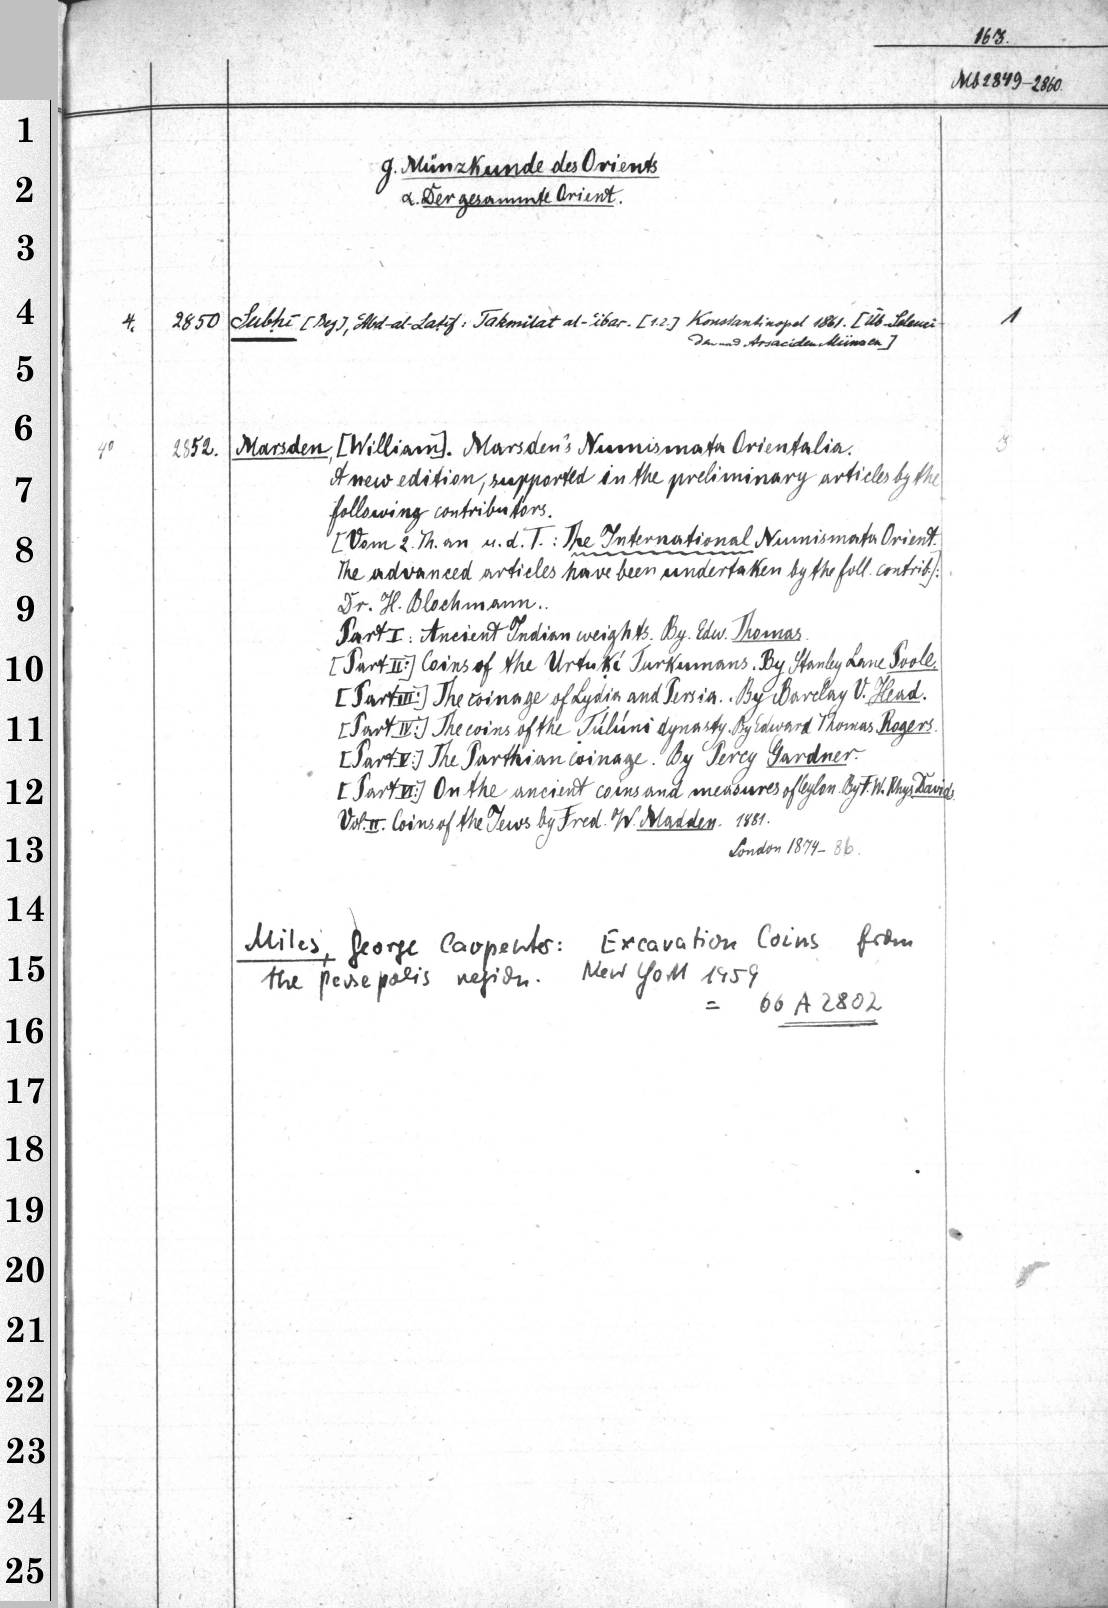 163.
Mb 2849-2860.
1
2
3
4
5
6
7
8
9
10
11
12
13
14
15
16
17
18
19
20
21
22
23
24
25
g. Münzkunde des Orients
α. Der gesammte Orient.
4. 2850 Subḥī [Bey], Abd-al-Latif: Takmilat al-ʿibar. [1.2.] Konstantinopel 1861. [Üb. Seleuci- 1
den und Arsaciden Münzen]
4° 2852. Marsden, [William]. Marsden's Numismata Orientalia. 3
A new edition, supported in the preliminary articles by the
following contributors.
[Vom 2. Th. an u. d. T.: The International Numismata Orient.
The advanced articles have been undertaken by the foll. contrib.]:
Dr. H. Blochmann..
Part I: Ancient Indian weights. By. Edw. Thomas.
[Part II:] Coins of the Urtuḳí Turkumans. By Stanley Lane Poole.
[Part III:] The coinage of Lydia and Persia.. By Barclay V. Head.
[Part IV:] The coins of the Ṭúlúni dynasty. By Edward Thomas Rogers.
[Part V:] The Parthian coinage. By Percy Gardner.
[Part VI:] On the ancient coins and measures of Ceylon. By T. W. Rhys Davids
Vol. II. Coins of the Jews by Fred. W. Madden. 1881.
London 1874-86.
Miles, George Carpenter: Excavation Coins from
the Persepolis region. New York 1959
= 66 A 2802